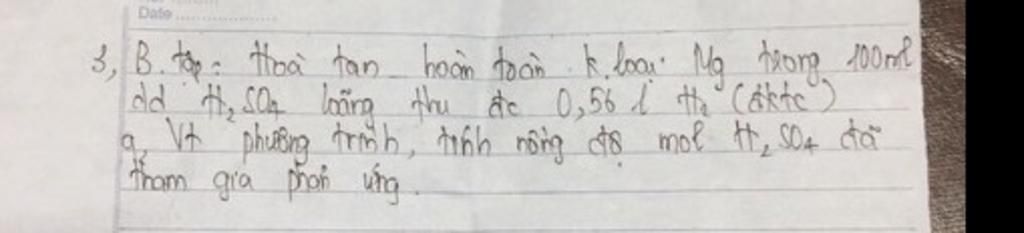 Date
3, B. tập: Hoà tan hoàn toàn k.loại Mg trong 100ml
dd H₂SO₄ loãng thu đc 0,56 l H₂ (đktc)
a, Vt phương trình, tính nồng độ mol H₂SO₄ đã
tham gia phản ứng.